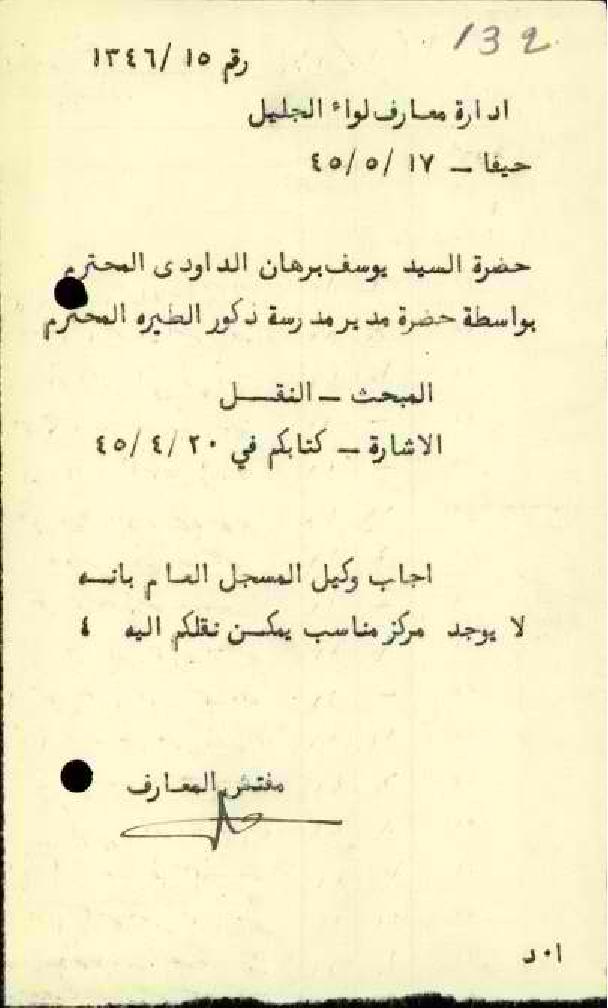 132
رقم ١٥ /١٣٤٦
ادارة معارف لواء الجليل
حيفا - ١٧ /٥ /٤٥
حضرة السيد يوسف برهان الداودى المحترم
بواسطة حضرة مدير مدرسة ذكور الطيره المحترم
المبحث - النقل
الاشارة - كتابكم في ٢٠ /٤ /٤٥
اجاب وكيل المسجل العام بانه
لا يوجد مركز مناسب يمكن نقلكم اليه ٤
مفتش المعارف
ا٠د